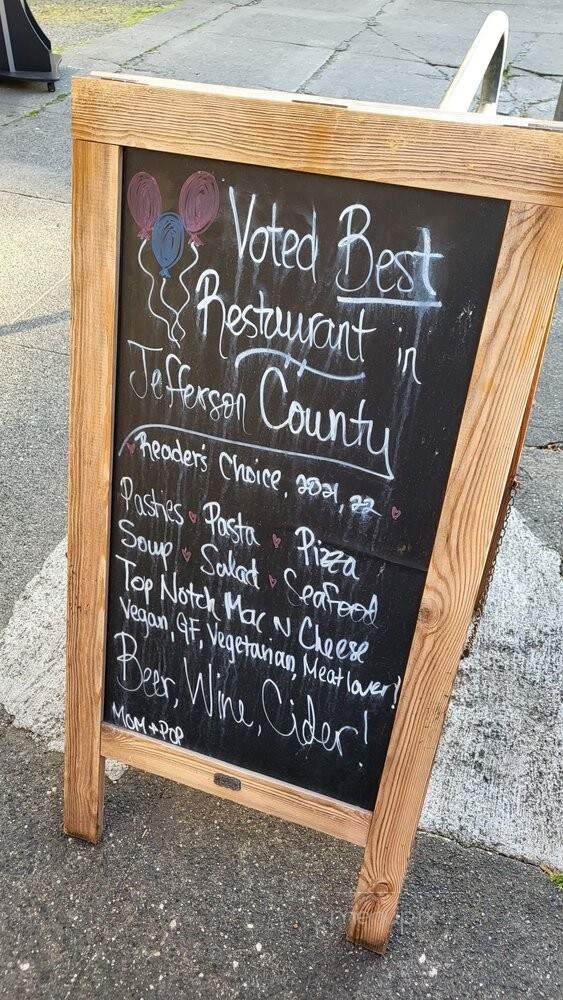 Voted Best
Restaurant in
Jefferson County
Reader's Choice, 2021, 22
Pasties Pasta Pizza
Soup Salad Seafood
Top Notch Mac N Cheese
Vegan, GF, Vegetarian, Meatlover!
Beer, Wine, Cider!
MOM + POP